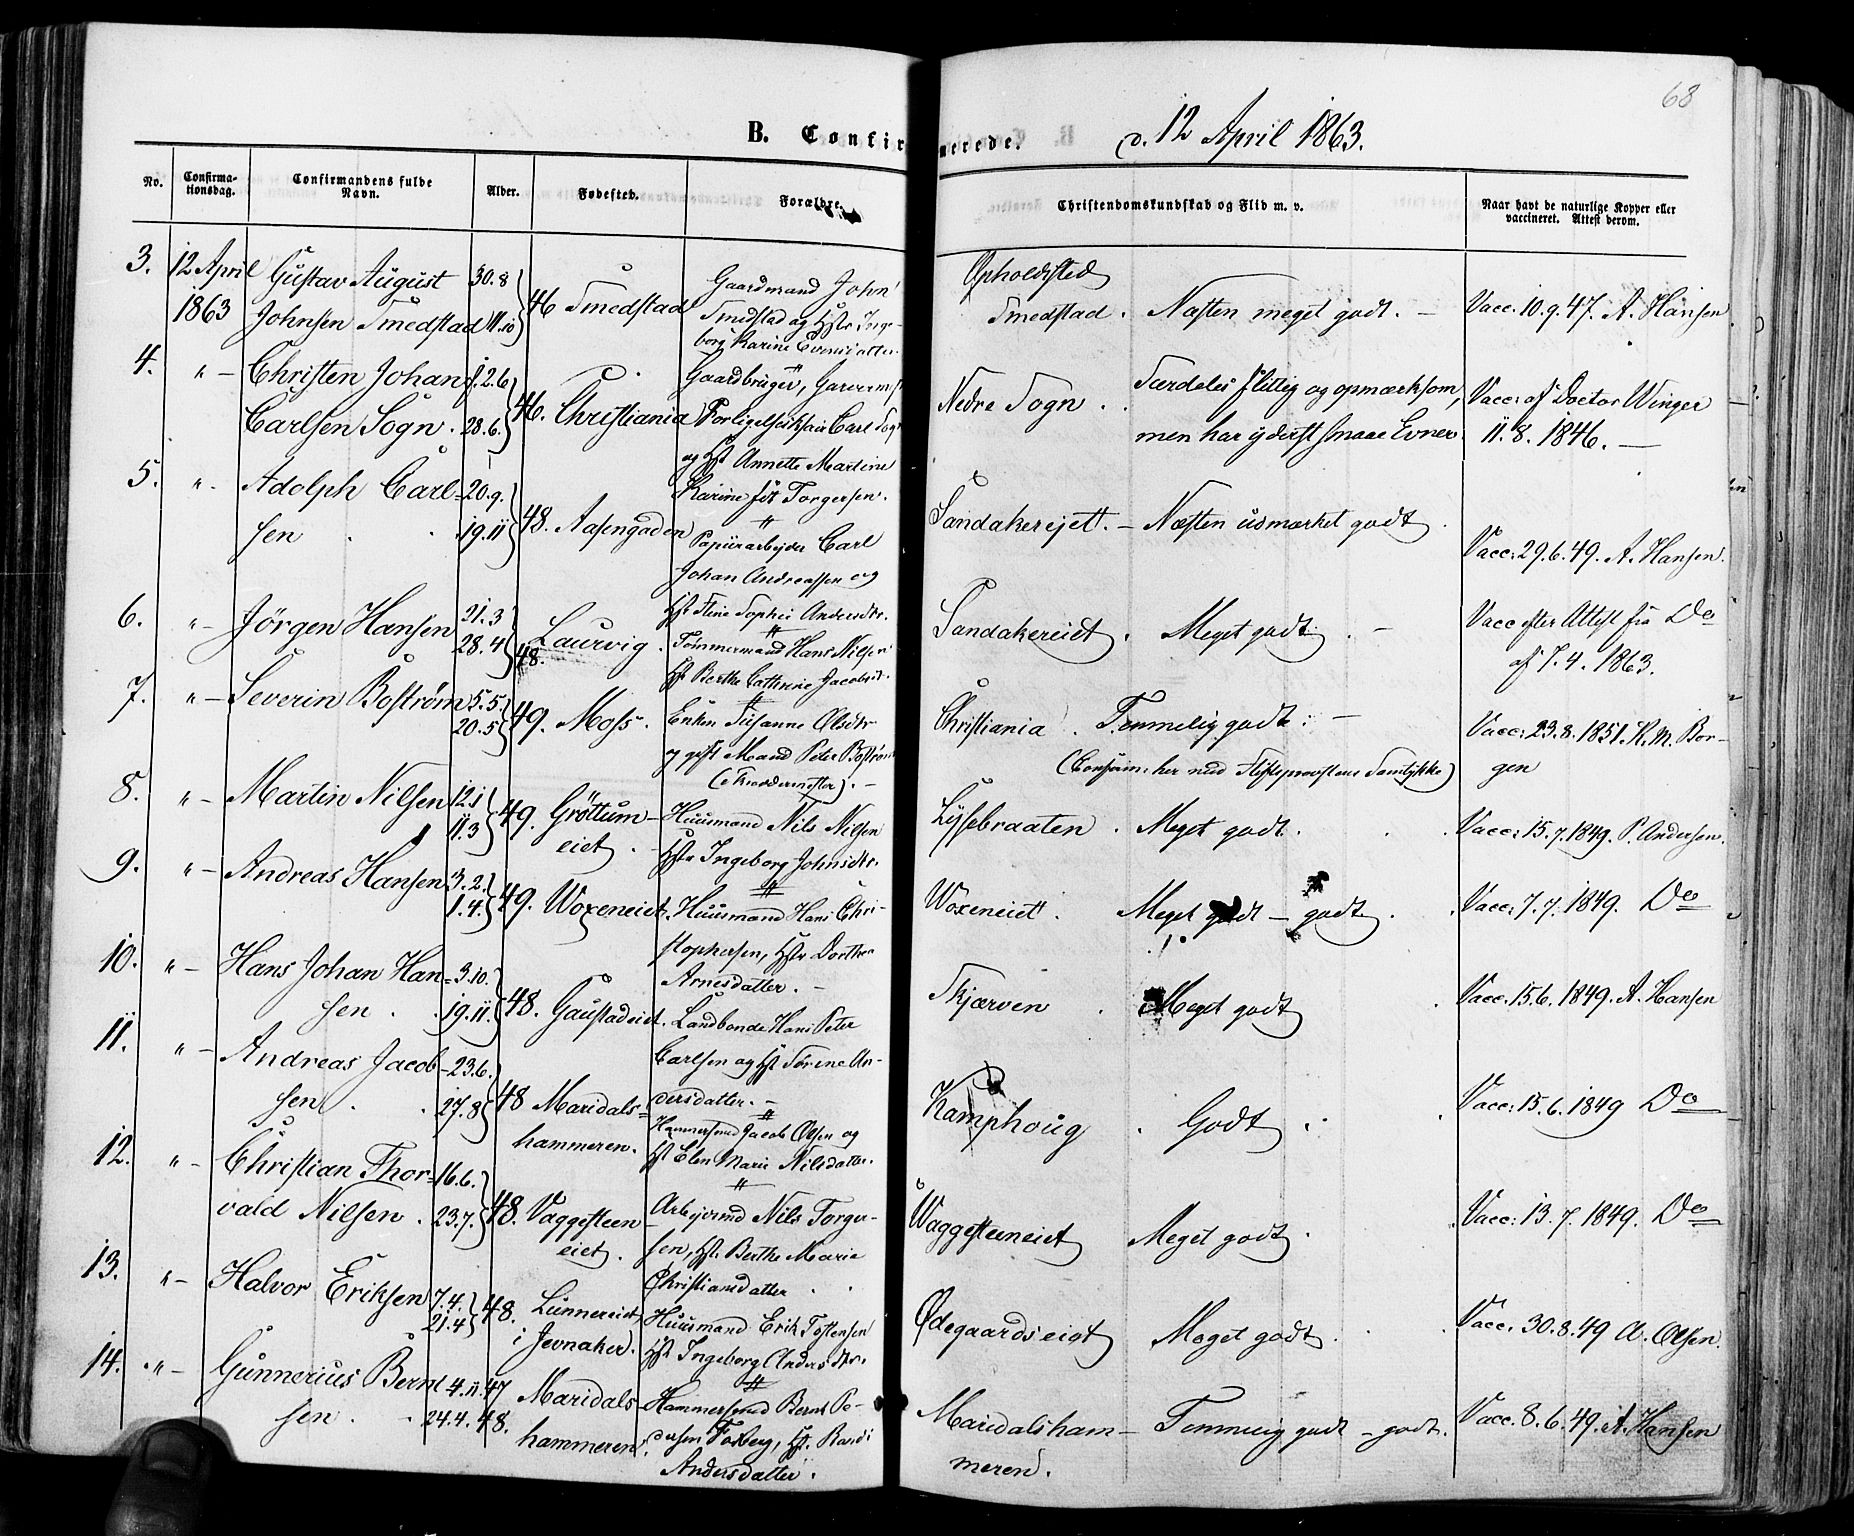 68
B. Confirmerede. d. 12 April 1863.
No. Confirmationsdag. Confirmandens fulde Navn. Alder. Fødested. Forældre. Christendomskundskab og Flid m. v. Naar havt de naturlige Kopper eller vaccineret. Attest derom.
3. 12 April Gustav August 30.8
1863 Johnsen Smedstad 11.10 46 Smedstad
Gaardmand John
Smedstad og Hst Inge-
borg Karine Evensdatter
Opholdsted
Smedstad. Næsten meget godt. — Vacc. 10.9.47. A. Hansen
4. " — Christen Johan 1.2.6
Carlsen Sogn. 28.6. 46. Christiania
Gaardbruger, Garverm
Forligelseskom Carl Sogn
og Hst Annette Martine
Karine fød Torgersen.
Nedre Sogn. Særdeles flittig og opmærksom,
men har yderst smaae Evner.
Vacc: af Doctor Winger
11.8.1846. —
5. " Adolph Carl- 20.9.
sen 19.11 48. Aasengaden
Papiirarbejder Carl
Johan Andreassen og
Hst Stine Sophie Andersdtr.
Sandakerejet. — Næsten udmærket godt
Vacc: 29.6.49. A. Hansen.
6. " — Jörgen Hansen 21.3
28.4 48. Laurvig.
Tømmermand Hans Nilsen
Hst Berthe Cathrine Jacobsd.
Sandakereiet. Meget godt. — Vacc efter Attest fra Do
af 7.4.1863.
7. " — Severin Boström 5.5.
20.5 49. Moss.
Enken Susanne Olsdtr
og gift Mand Peter Boström
(Skreddermester). —
Christiania. Temmelig godt. —
(Confirm: her med Stiftsprovstens Samtykke)
Vacc: 23.8.1851. K. M. Bor-
gen
8. " — Martin Nilsen 12.1
11.3 49. Gröttum-
eiet.
Huusmand Nils Nilsen
Hstr Ingeborg Johnsdtr.
Lysebraaten. Meget godt. Vacc: 15.7.1849. P. Andersen.
9. " — Andreas Hansen 3.2.
1.4. 49. Woxeneiet.
Huusmand Hans Chri-
stophersen, Hstr Dorthe
Arnesdatter. —
Woxeneiet. Meget godt — godt. Vacc: 7.7.1849. Do
10. " — Hans Johan Han- 3.10.
sen. 19.11. 48. Gaustadeiet.
Landbonde Hans Peter
Carlsen og Hst Sörine An-
dersdatter. —
Skjærven. Meget godt Vacc: 15.6.1849. A. Hansen
11. " — Andreas Jacob- 23.6.
sen. 27.8 48 Maridals-
hammeren.
Hammersmd Jacob Olsen og
Hst Elen Marie Nilsdatter.
Kamphoug. Godt Vacc: 15.6.1849 Do
12. " — Christian Thor- 16.6.
vald Nilsen. 23.7. 48. Vaggesteen
eiet.
Arbejdsmd Nils Torger-
sen, Hst. Berthe Marie
Christiansdatter
Waggesteeneiet Meget godt. Vacc: 13.7.1849. Do
13. " — Halvor Eriksen 7.4.
21.4 48. Lunnereiet
i Jevnaker.
Huusmand Erik Tostensen
Hst Ingeborg Andersdtr.
Ødegaardseiet Meget godt. Vacc. 30.8.49 A. Olsen.
14. " — Gunnerius Bernt 4.11.47
sen. 24.4.48. Maridals-
hammeren.
Hammersmd Bernt Pe-
dersen Foxberg, Hst. Randi
Andersdatter.
Maridalsham-
meren. Temmelig godt — godt. Vacc. 8.6.49. A. Hansen